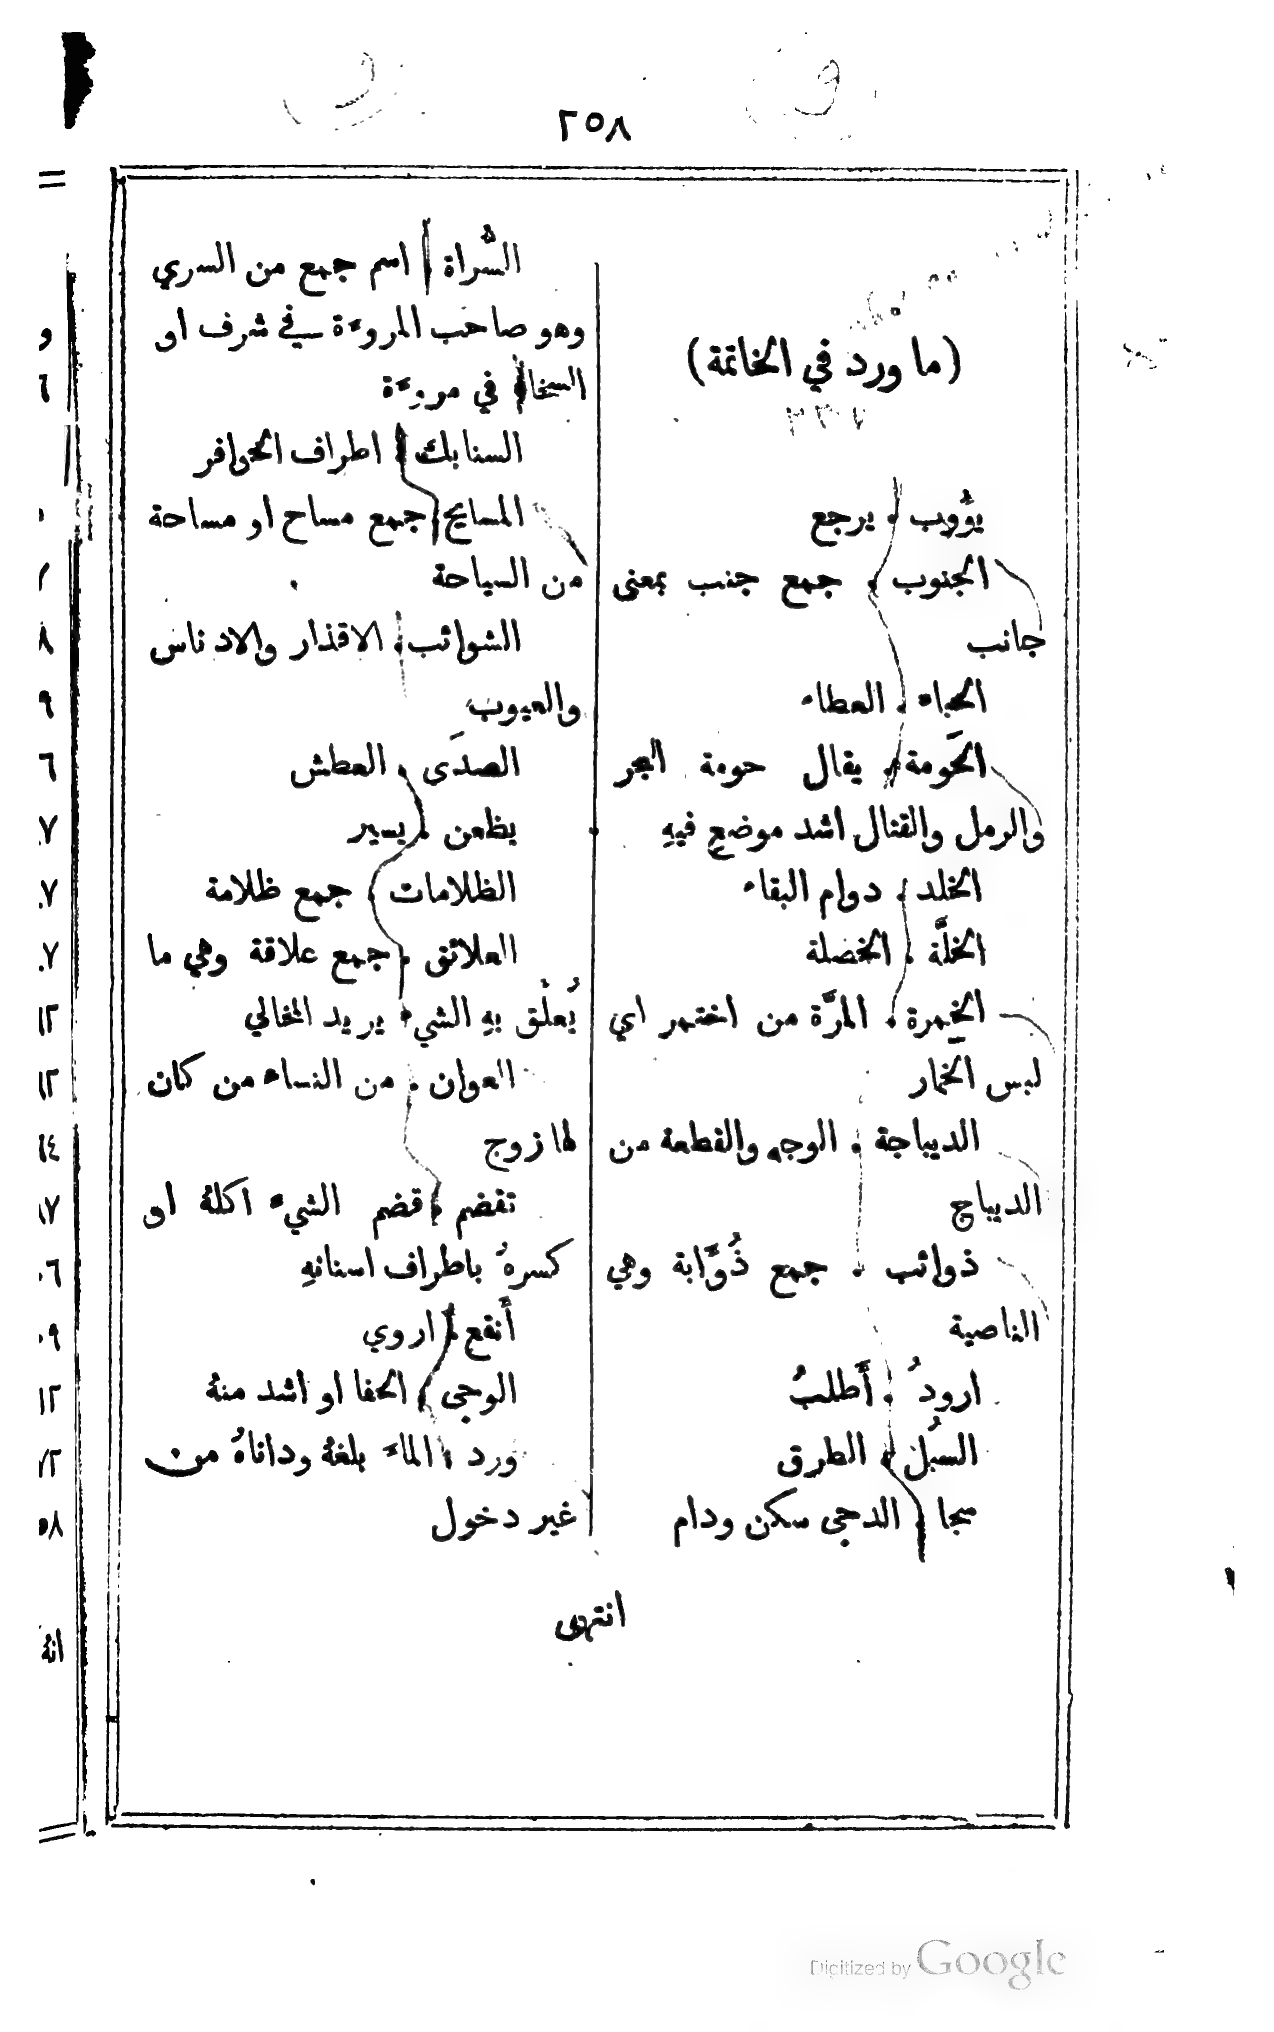 ٢٥٨
(ما ورد في الخاتمة)
يؤُوب . يرجع
الجنوب . جمع جنب بمعنى
جانب
الحباء . العطاء
الحَومة . يقال حومة البحر
والرمل والقتال اشد موضعٍ فيهِ
الخلد . دوام البقاء
الخلَّة . الخصلة
الخِمرة . المرَّة من اختمر اي
لبس الخمار
الديباجة . الوجه والقطعة من
الديباج
ذوائب . جمع ذُوَّابة وهي
الناصية
ارودُ . أَطلبُ
السبُل . الطرق
سجا . الدجى سكن ودام
السُّراة . اسم جمع من السري
وهو صاحب المروءة في شرف او
السخاء في مروءة
السنابك . اطراف الحوافر
المسايح . جمع مساح او مساحة
من السياحة
الشوائب . الاقذار والادناس
والعيوب
الصدَى . العطش
يظعن . يسير
الظلامات . جمع ظلامة
العلائق . جمع علاقة وهي ما
يُعلَّق بهِ الشيء يريد المخالي
العوان . من النساء من كان
لها زوج
تقضم . قضم الشيء اكلهُ او
كسرهُ باطراف اسنانهِ
أَنقع . اروي
الوجى . الحفا او اشد منهُ
ورد . الماءَ بلغهُ وداناهُ من
غير دخول
انتهى
Digitized by Google